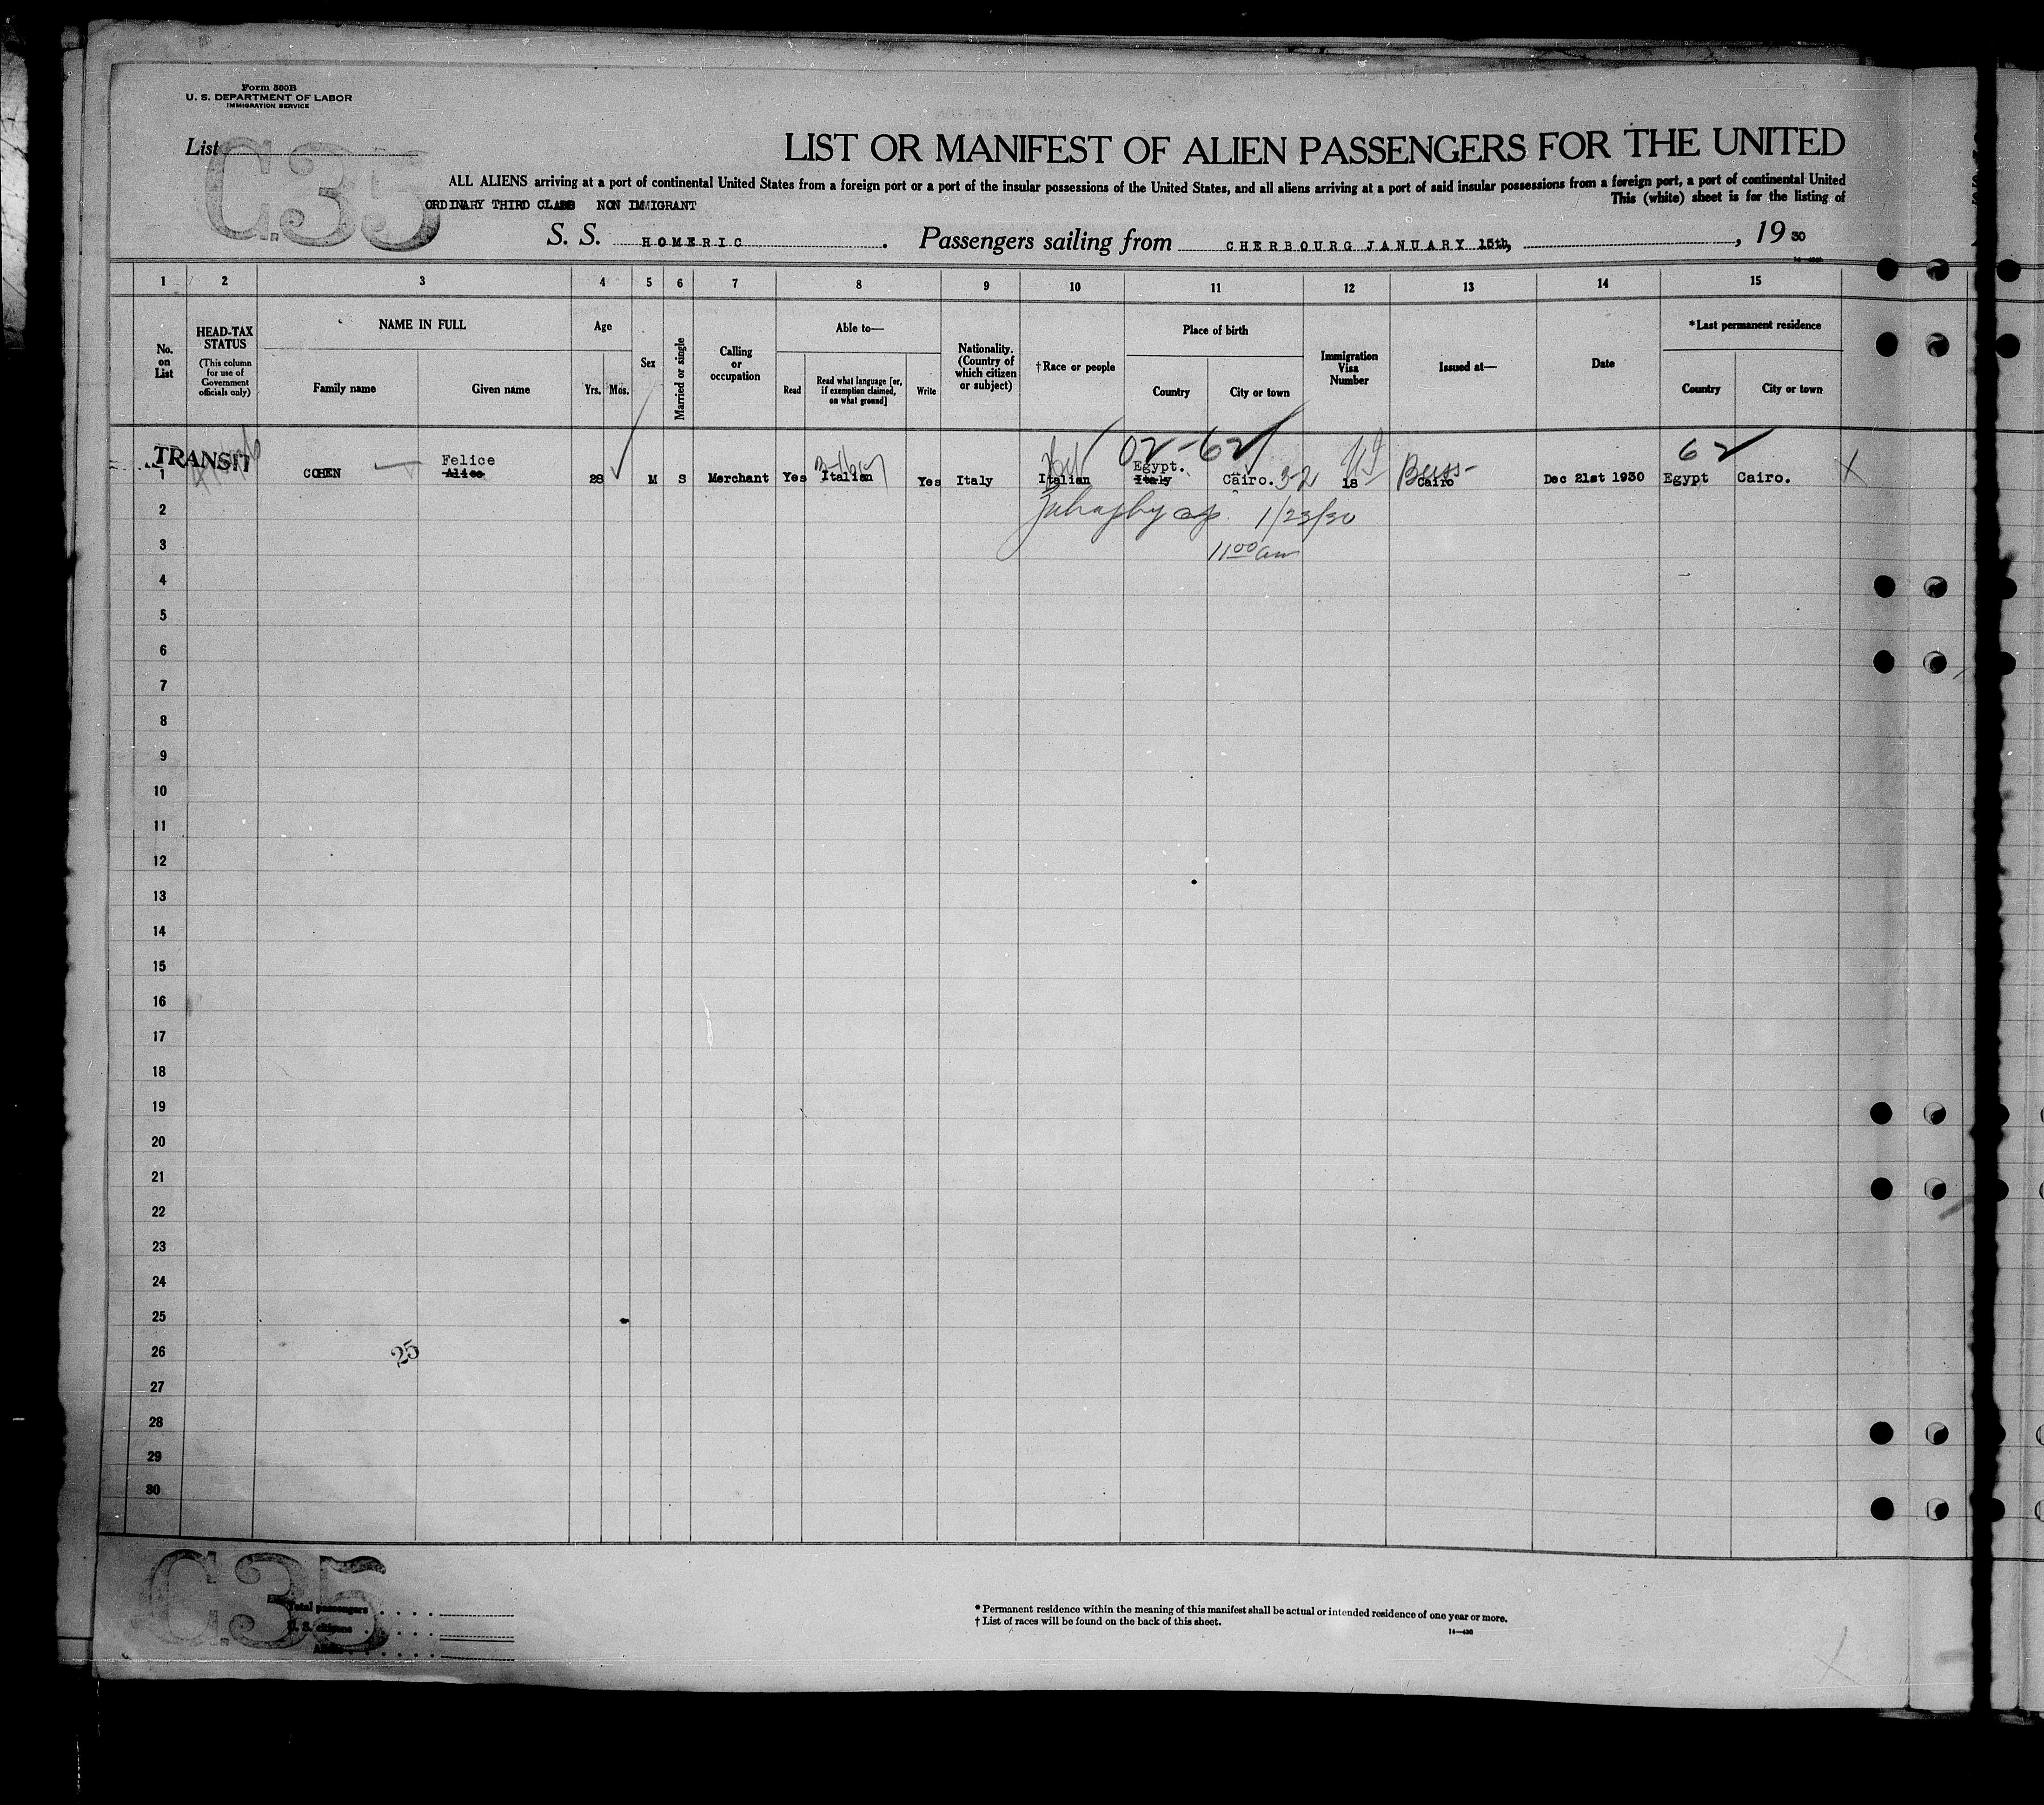 Form 500B
U. S. DEPARTMENT OF LABOR
IMMIGRATION SERVICE
List
C.35
LIST OR MANIFEST OF ALIEN PASSENGERS FOR THE UNITED
ALL ALIENS arriving at a port of continental United States from a foreign port or a port of the insular possessions of the United States, and all aliens arriving at a port of said insular possessions from a foreign port, a port of continental United
ORDINARY THIRD CLASS NON IMMIGRANT
This (white) sheet is for the listing of
S. S. HOMERIC. Passengers sailing from CHERBOURG JANUARY 15th, , 19 30
1 2 3 4 5 6 7 8 9 10 11 12 13 14 15
No. on List
HEAD-TAX STATUS
(This column for use of Government officials only)
NAME IN FULL
Family name
Given name
Age
Yrs.
Mos.
Sex
Married or single
Calling or occupation
Able to—
Read
Read what language [or, if exemption claimed, on what ground]
Write
Nationality. (Country of which citizen or subject)
†Race or people
Place of birth
Country
City or town
Immigration Visa Number
Issued at—
Date
*Last permanent residence
Country
City or town
02-62
62
TRANSIT
Felice
Egypt.
1 COHEN Alice 28 M S Merchant Yes Italian Yes Italy Italian Italy Cairo. 32 18 Cairo Dec 21st 1930 Egypt Cairo. X
2
1/23/30
3
11 00 am
4
5
6
7
8
9
10
11
12
13
14
15
16
17
18
19
20
21
22
23
24
25
26
25
27
28
29
30
C.35
Total passengers
U. S. citizens
* Permanent residence within the meaning of this manifest shall be actual or intended residence of one year or more.
† List of races will be found on the back of this sheet.
14—430